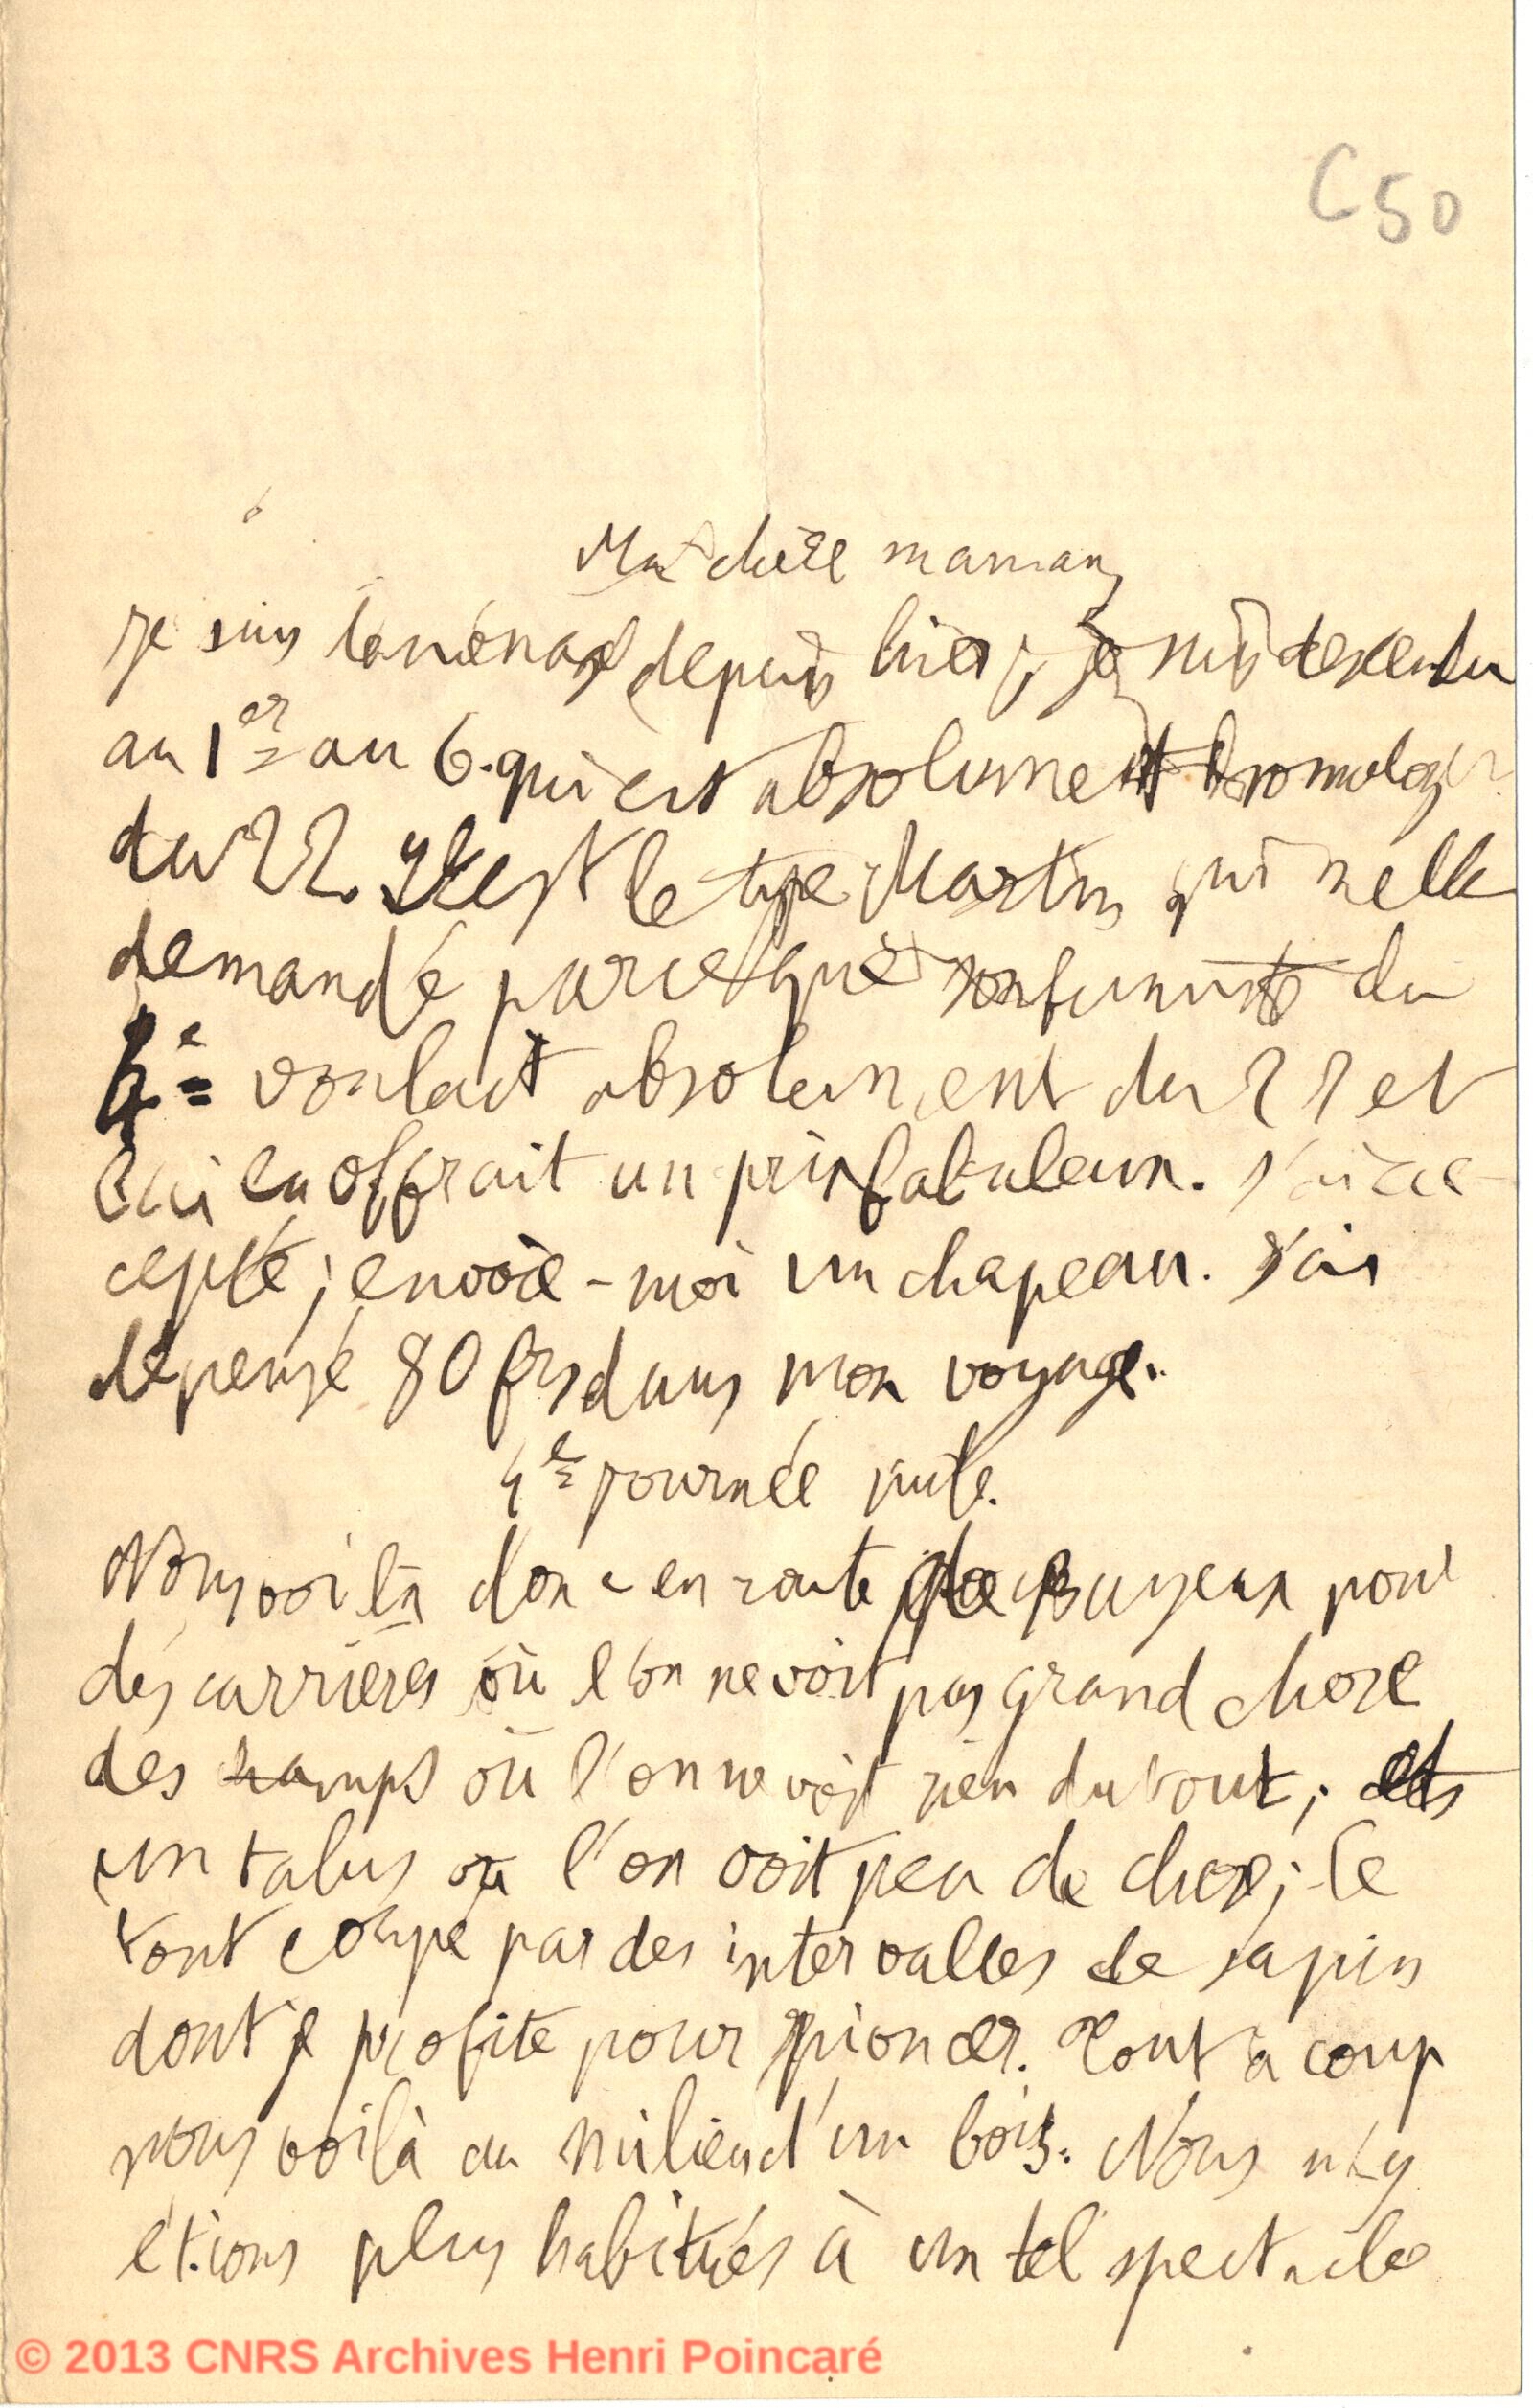 C50
Ma chère maman,
Je suis depuis hier; je suis descendu
au 1er au 6. qui est absolument homologue
du 22. C'est le type Martin qui me l'a
demandé parce que du
4e voulait absolument du 22 et
lui en offrait un prix fabuleux. J'ai ac-
cepté; envoie-moi un chapeau. J'ai
dépensé 80 frs dans mon voyage.
4e journée suite.
Nous voilà donc en route de Bayeux pour
des carrières où l'on ne voit pas grand chose
des champs où l'on ne voit rien du tout; et
un talus où l'on voit peu de chose; le
tout coupé par des intervalles de sapin
dont je profite pour pioncer. Tout à coup
nous voilà au milieu d'un bois. Nous n'y
étions plus habitués à un tel spectacle
© 2013 CNRS Archives Henri Poincaré